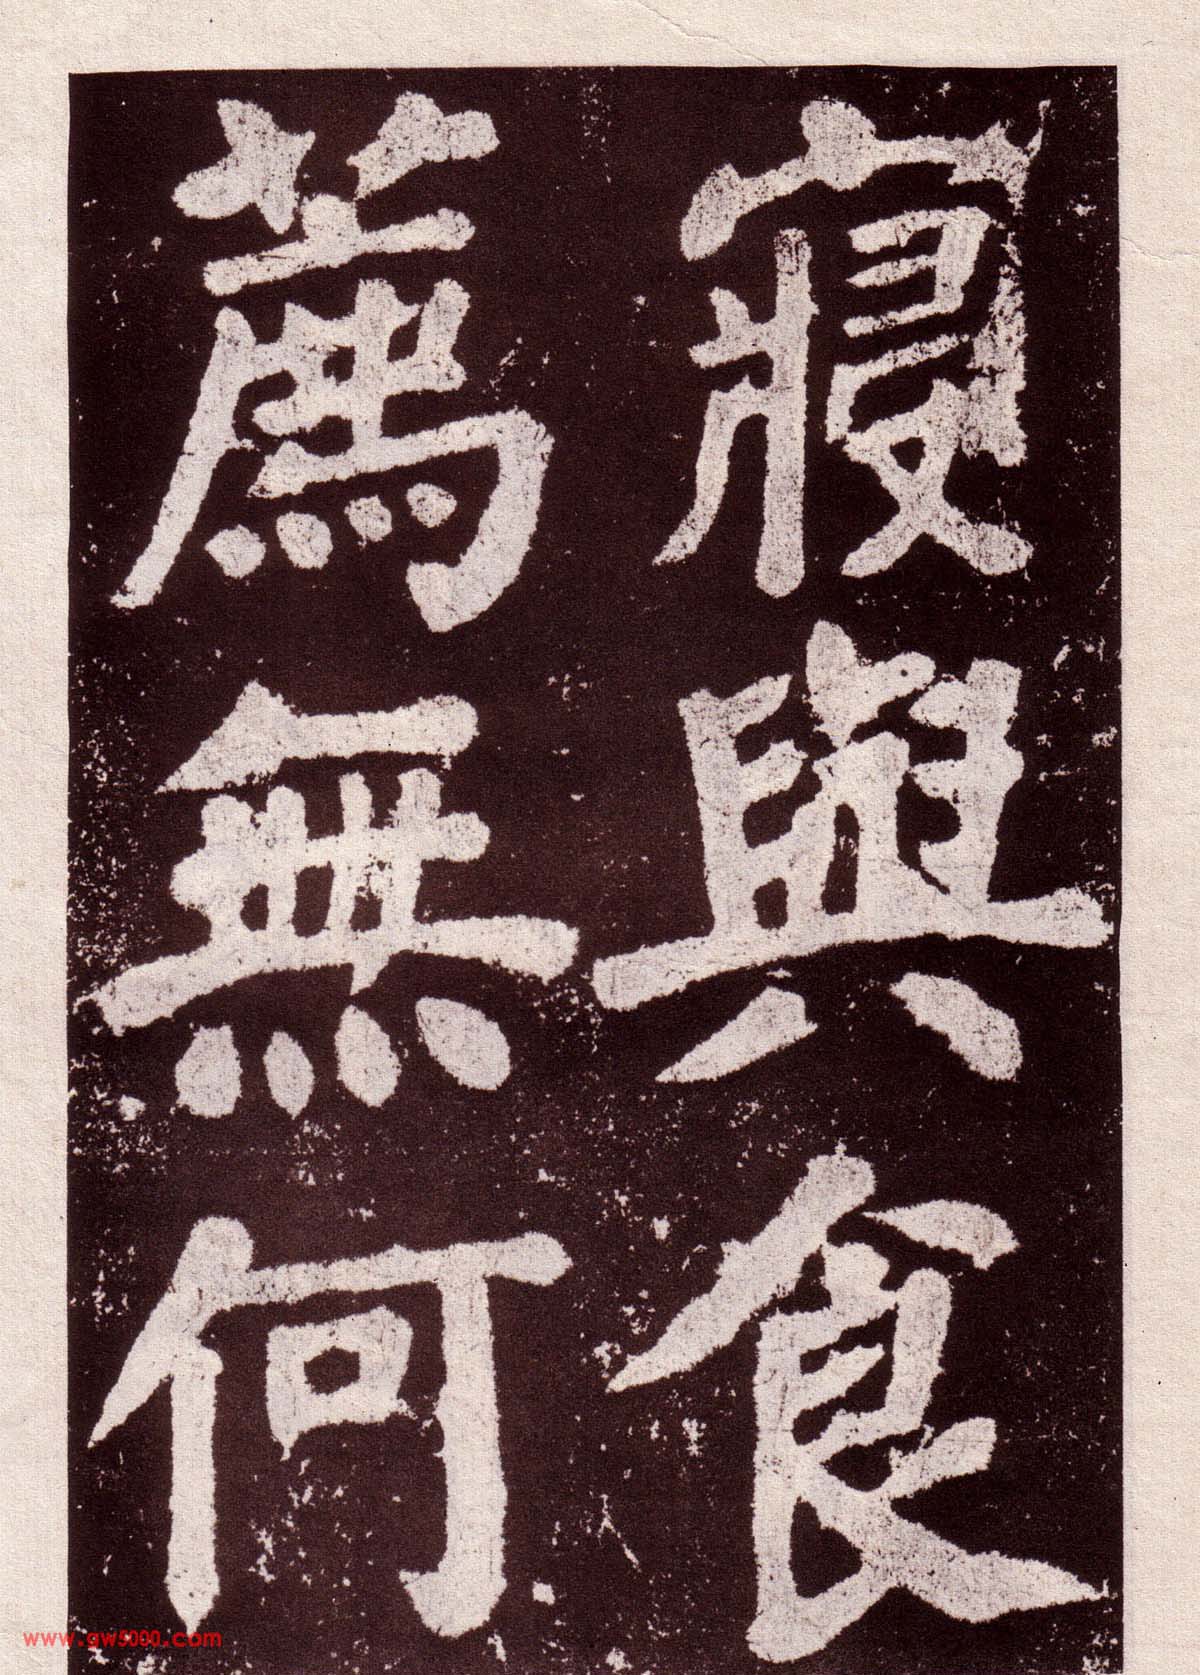 寢與食
薦無何
www.gw5000.com